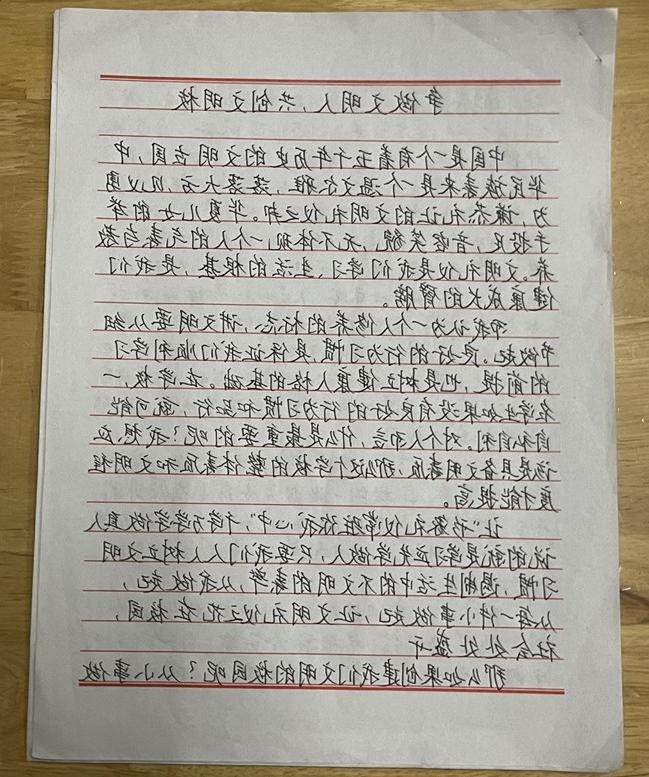 争做文明人，共创文明校
中国是一个有着五千年历史的文明古国，中
华民族素来是一个温文尔雅，落落大方，见义勇
为，谦恭礼让的文明礼仪之邦。华夏儿女的举
手投足，音容笑貌，无不体现一个人的气素与教
养。文明礼仪是我们学习、生活的根基，是我们
健康成长的臂膀。
而我认为一个人修养的标志，讲文明要从细
节做起。良好的行为习惯，是保证我们顺利学习
的前提，也是树立健康人格的基础。在学校，一
名学生如果没有良好的行为习惯和品行，就可能
自私自利。对个人而言，什么是最重要的呢？我想，应
该是具备文明素质，那么这个学校的整体素质和文明程
度才能提高。
让“书香礼仪常驻你我心中”，千学万学学做真人
说的就是学习应先学做人，只要我们人人树立文明
习惯，遏制生活中的不文明的素举，从我做起，
从每一件小事做起，让文明礼仪之花在校园，
社会处处盛开
那么如果创建我们文明的校园呢？从小事做